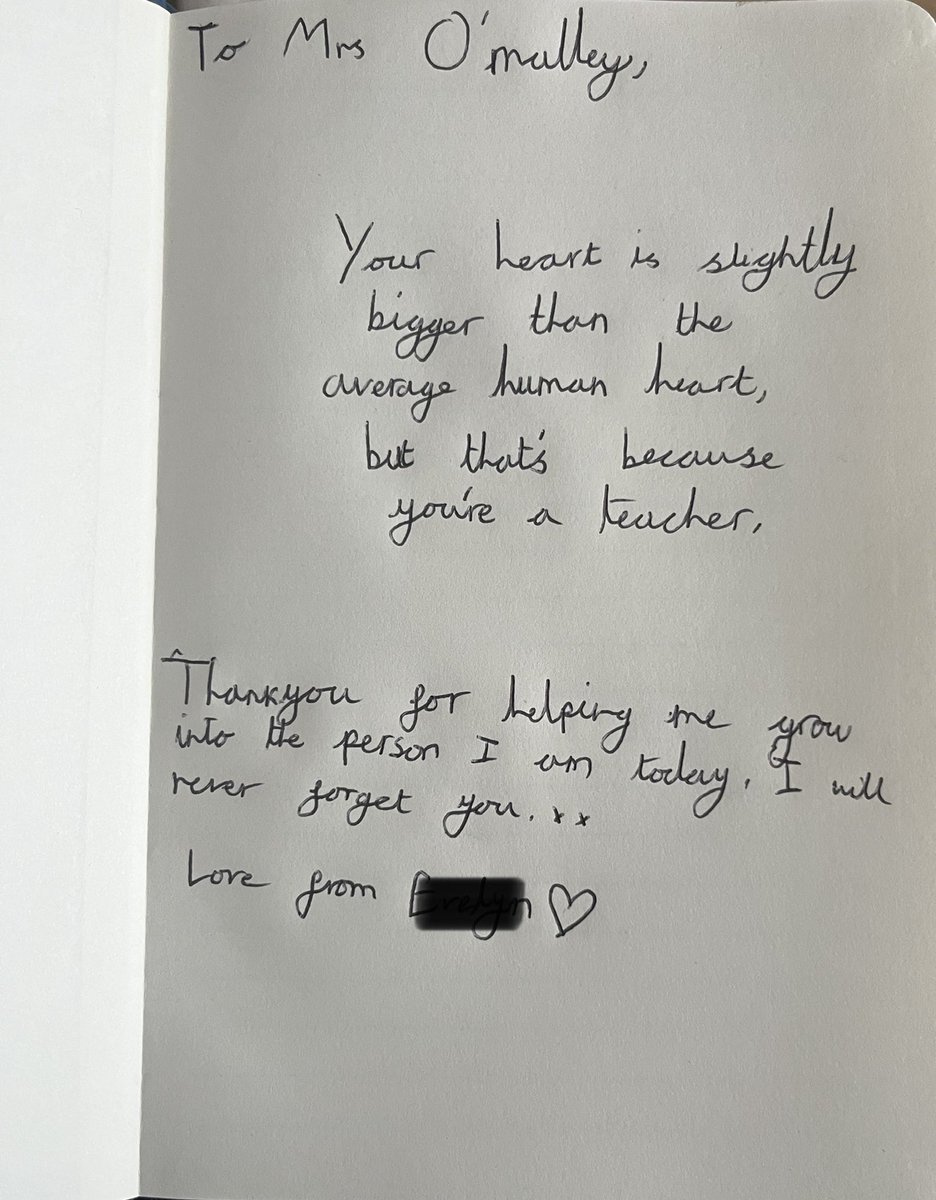 To Mrs O'malley,
Your heart is slightly
bigger than the
average human heart,
but that's because
you're a teacher.
Thankyou for helping me grow
into the person I am today. I will
never forget you. x x
Love from